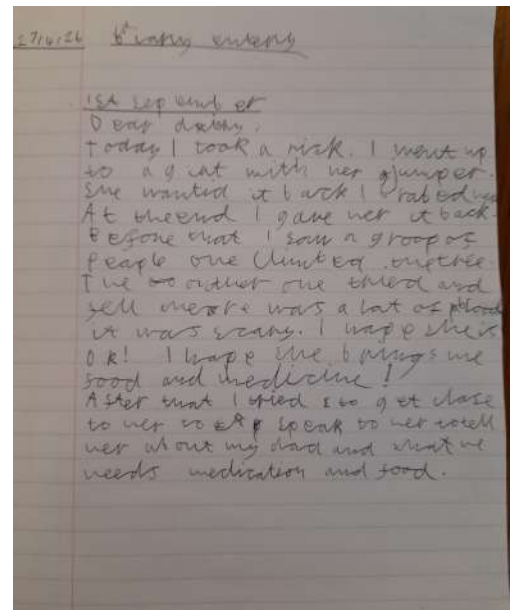 27/4/26 diary entery
1st September
Dear diary,
Today I took a risk. I went up
to a girl with her jumper.
She wanted it back I
At the end I gave her it back.
Before that I saw a groop of
people one climbed the tree.
The other one tried and
fell there was a lot of blood
it was scary. I hope she is
OK! I hope she brings me
food and medicine!
After that I tried to get close
to her to speak to her to tell
her about my dad and that he
needs medication and food.